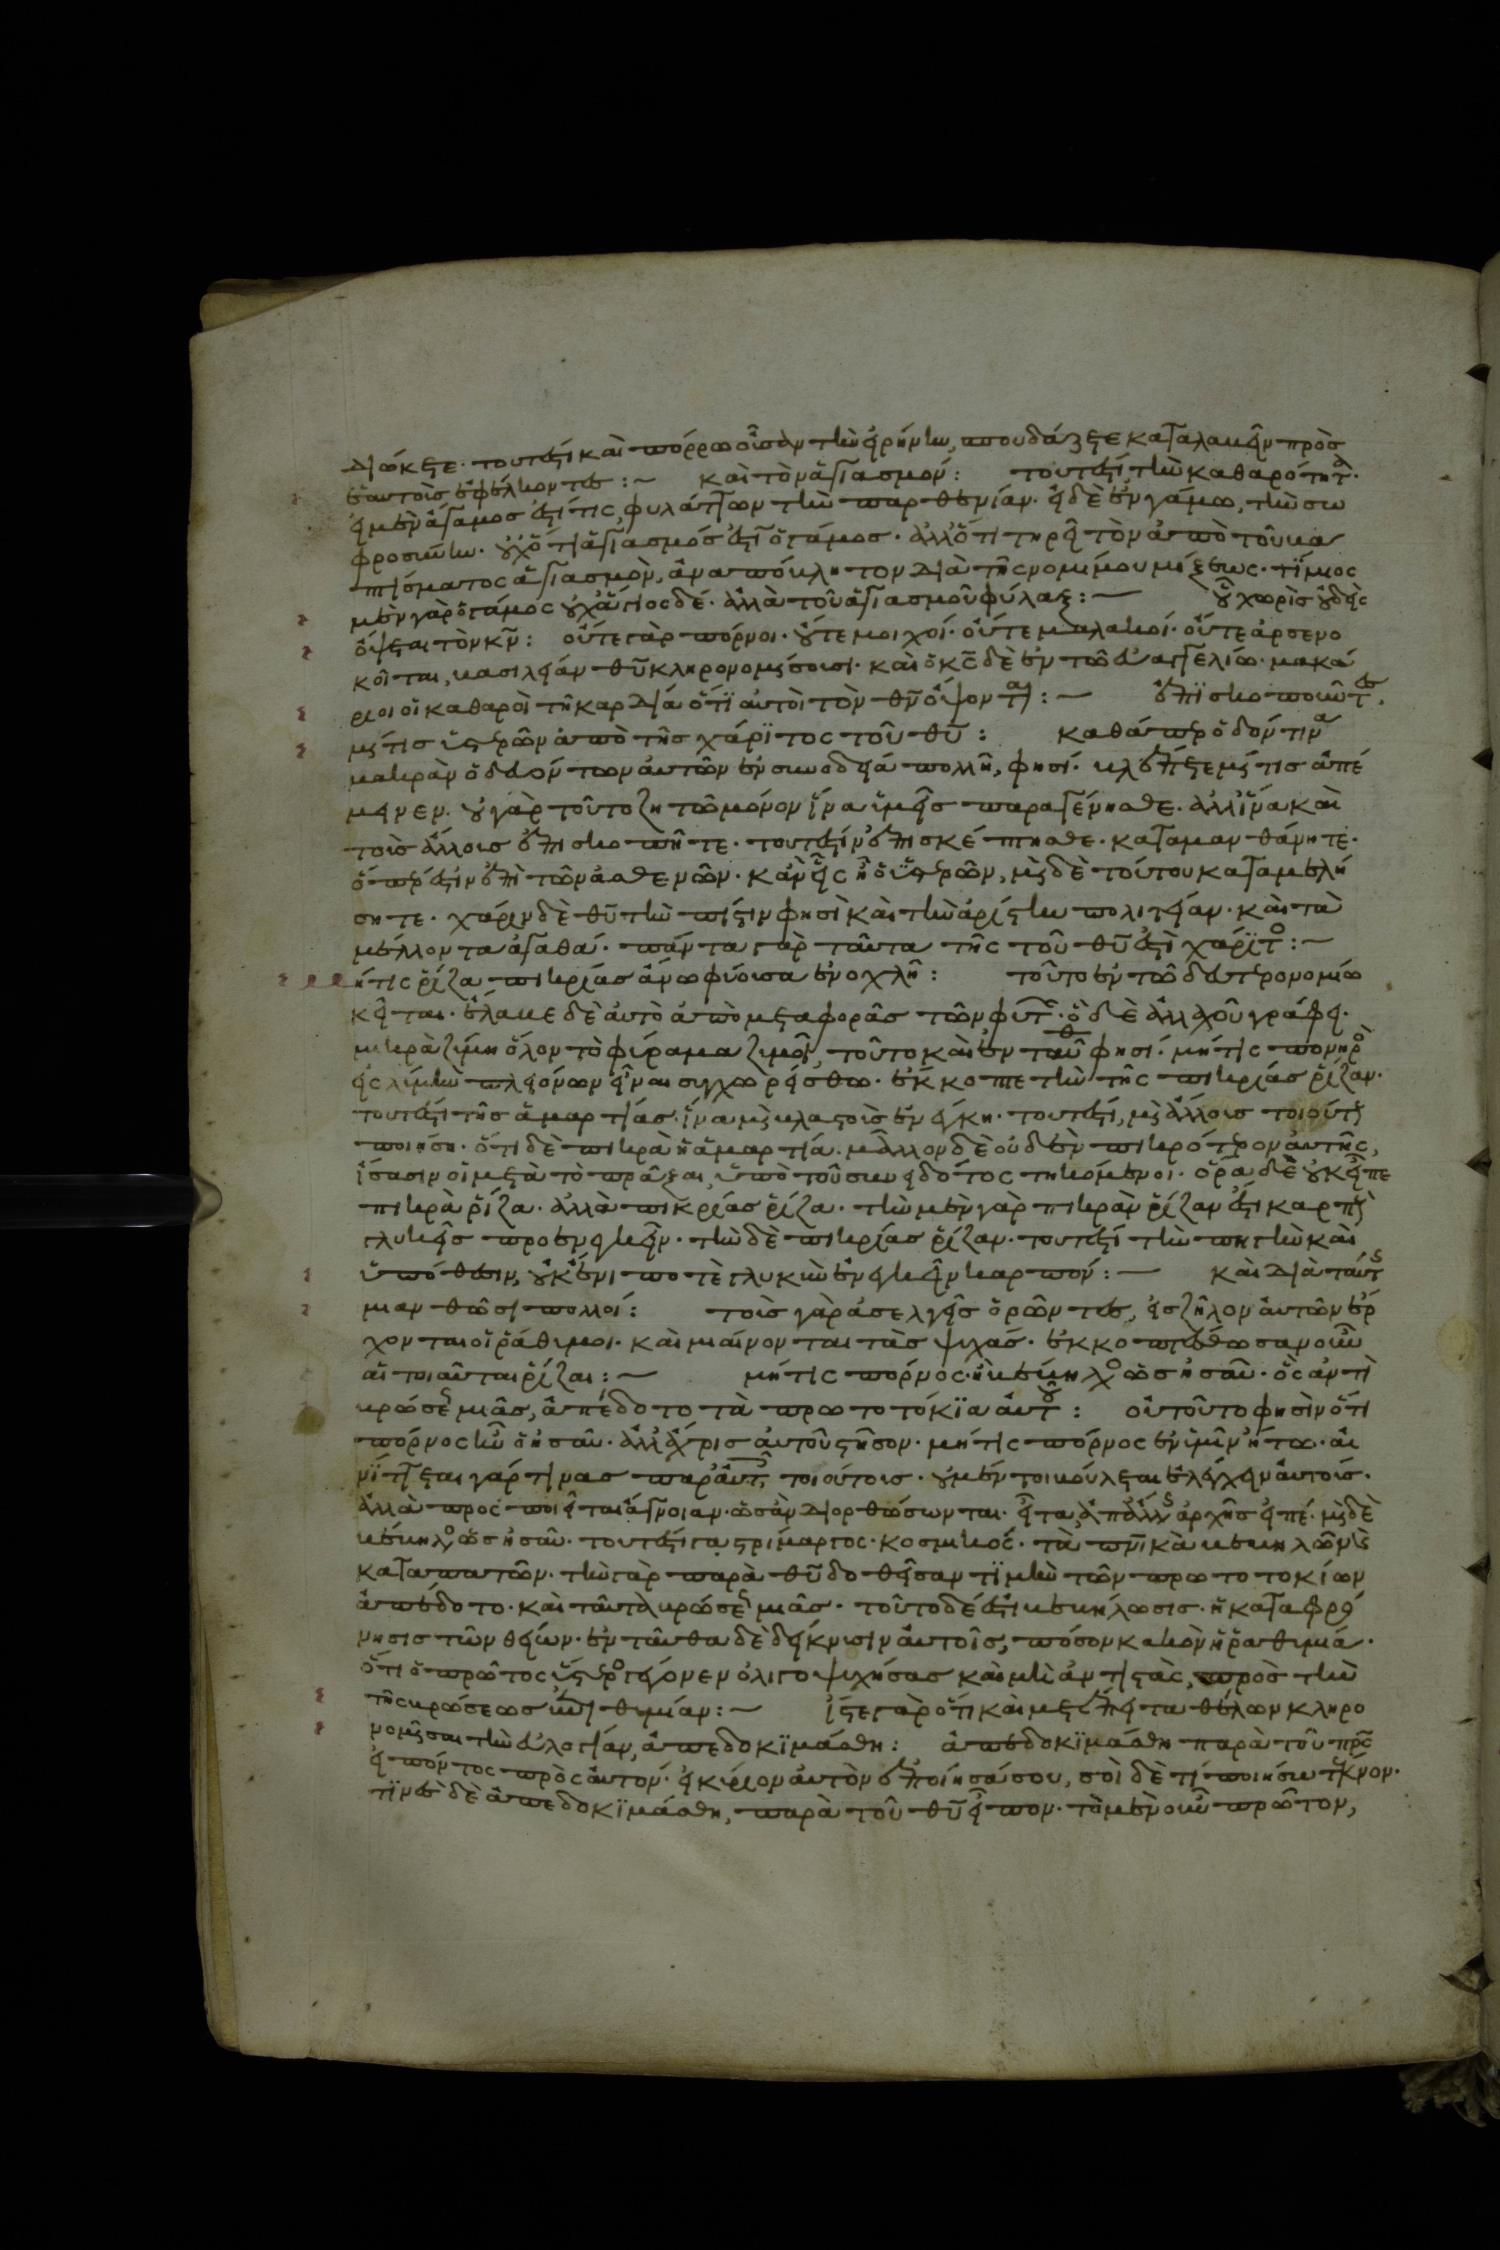 διώκετε. τουτέστι καὶ πόρρω οὖσαν τὴν εἰρήνην, σπουδάζετε καταλαβεῖν πρὸς
ἑαυτοὺς ἐφέλκοντες :~ καὶ τὸν ἁγιασμόν : τουτέστι τὴν καθαρότητα.
εἰ μὲν ἄγαμος ἐστί τις, φυλάττων τὴν παρθενίαν. εἰ δὲ ἐν γάμω, τὴν σω
φροσύνην. οὐχ ὅτι ἁγιασμός ἐστιν ὁ γάμος. ἀλλ' ὅτι τηρεῖ τὸν ἀπὸ τοῦ βα
πτίσματος ἁγιασμὸν, ἀναπόβλητον διὰ τῆς νομίμου μίξεως. τίμιος
μὲν γὰρ ὁ γάμος οὐχ ἅγιος δέ. ἀλλὰ τοῦ ἁγιασμοῦ φύλαξ :~ οὗ χωρὶς οὐδεὶς
ὄψεται τὸν κν̄ : οὔτε γὰρ πόρνοι. οὔτε μοιχοί. οὔτε μαλακοί. οὔτε ἀρσενο
κοῖται, βασιλείαν θῡ κληρονομήσουσι. καὶ ὁ κς̄ δὲ ἐν τῶ εὐαγγελίω. μακά
ριοι οἱ καθαροὶ τῆ καρδία ὅτι αὐτοὶ τὸν θν̄ ὄψονται :~ ἐπισκοποῦντες,
μή τις ὑστερῶν ἀπὸ τῆς χάριτος τοῦ θῡ : καθάπερ ὁδόν τινα
μακρὰν ὁδευόντων αὐτῶν ἐν συνοδεία πολλῆ, φησί. βλέπετε μή τις ἀπέ
μεινεν. οὐ γὰρ τοῦτο ζητῶ μόνον ἵνα ὑμεῖς παραγένησθε. ἀλλ' ἵνα καὶ
τοὺς ἄλλους ἐπισκοπῆτε. τουτέστιν ἐπισκέπτησθε. καταμανθάνητε.
ὅπερ ἐστὶν ἐπὶ τῶν ἀσθενῶν. κἂν εἷς ᾖ ὁ ὑστερῶν, μηδὲ τούτου καταμελή
σητε. χάριν δὲ θῡ τὴν πίστιν φησὶ καὶ τὴν ἀρίστην πολιτείαν. καὶ τὰ
μέλλοντα ἀγαθά. πάντα γὰρ ταῦτα τῆς τοῦ θῡ ἐστι χάριτος :~
ή τις ῥίζα πικρίας ἄνω φύουσα ἐνοχλῆ : τοῦτο ἐν τῶ δευτερονομίω
κεῖται. ἔλαβε δὲ αὐτὸ ἀπὸ μεταφορᾶς τῶν φυτῶν. ὃ δὲ ἀλλαχοῦ γράφει.
μικρὰ ζύμη ὅλον τὸ φύραμα ζυμοῖ, τοῦτο καὶ ἐνταῦθα φησί. μή τις πονηρὸς
εἰς λύμην πλειόνων εἶναι συγχωρείσθω. ἔκκοπτε τὴν τῆς πικρίας ῥίζαν.
τουτέστι τῆς ἁμαρτίας. ἵνα μὴ βλαστοὺς ἐνέγκη. τουτέστι, μὴ ἄλλους τοιούτους
ποιήση. ὅτι δὲ πικρὰ ἡ ἁμαρτία. μᾶλλον δὲ οὐδὲν πικρότερον αὐτῆς,
ἴσασιν οἱ μετὰ τὸ πρᾶξαι, ὑπὸ τοῦ συνειδότος τηκόμενοι. ὅρα δὲ οὐκ εἶπε
πικρὰ ῥίζα. ἀλλὰ πικρίας ῥίζα. τὴν μὲν γὰρ πικρὰν ῥίζαν ἔστι καρποὺς
γλυκεῖς προενεγκεῖν. τὴν δὲ πικρίας ῥίζαν. τουτέστι τὴν πηγὴν καὶ
ὑπόθεσιν, οὐκ ἔνι ποτὲ γλυκὺν ἐνεγκεῖν καρπόν :~ καὶ διὰ ταύτης
μιανθῶσι πολλοί : τοὺς γὰρ ἀσελγεῖς ὁρῶντες, εἰς ζῆλον αὐτῶν ἔρ
χονται οἱ ῥάθυμοι. καὶ μιαίνονται τὰς ψυχάς. ἐκκοπτέσθωσαν οὖν
αἱ τοιαῦται ῥίζαι :~ μή τις πόρνος. ἢ βέβηλος ὡς ἠσαῦ. ὃς ἀντὶ
βρώσεως μιᾶς, ἀπέδοτο τὰ πρωτοτόκια αὐτοῦ : οὐ τοῦτο φησὶν ὅτι
πόρνος ἦν ὁ ἠσαῦ. ἀλλ' ἄχρις αὐτοῦ στῆσον. μή τις πόρνος ἐν ὑμῖν ἤτω. αἰ
νίττεται γάρ τινας παρ' αὐτοῖς τοιούτους. οὐ μέν τοι βούλεται ἐλέγχειν αὐτούς.
ἀλλὰ προσποιεῖται ἄγνοιαν. ὡς ἂν διορθώσωνται. εἶτα, ἀπ' ἄλλης ἀρχῆς εἰπέ. μηδὲ
βέβηλος ὡς ἠσαῦ. τουτέστι γαστρίμαργος. κοσμικός. τὰ πνικὰ βεβηλῶν καὶ
καταπατῶν. τὴν γὰρ παρὰ θῡ δοθεῖσαν τιμὴν τῶν πρωτοτοκίων
ἀπέδοτο. καὶ ταῦτα βρώσεως μιᾶς. τοῦτο δέ ἐστι βεβήλωσις. ἡ καταφρό
νησις τῶν θείων. ἐνταῦθα δὲ δείκνυσιν αὐτοῖς, πόσον κακὸν ἡ ῥαθυμία.
ὅτι ὁ πρῶτος ὕστερος γέγονεν ὀλιγοψυχήσας καὶ μὴ ἀντιστὰς, πρὸς τὴν
τῆς βρώσεως ἐπιθυμίαν :~ ἴστε γὰρ ὅτι καὶ μετέπειτα θέλων κληρο
νομῆσαι τὴν εὐλογίαν, ἀπεδοκιμάσθη : ἀπεδοκιμάσθη παρὰ τοῦ πρς̄
εἰπόντος πρὸς αὐτόν. εἰ κύριον αὐτὸν ἐποίησά σου, σοὶ δὲ τί ποιήσω τέκνον.
τινὲς δὲ ἀπεδοκιμάσθη, παρὰ τοῦ θῡ εἶπον. τὸ μὲν οὖν πρῶτον,